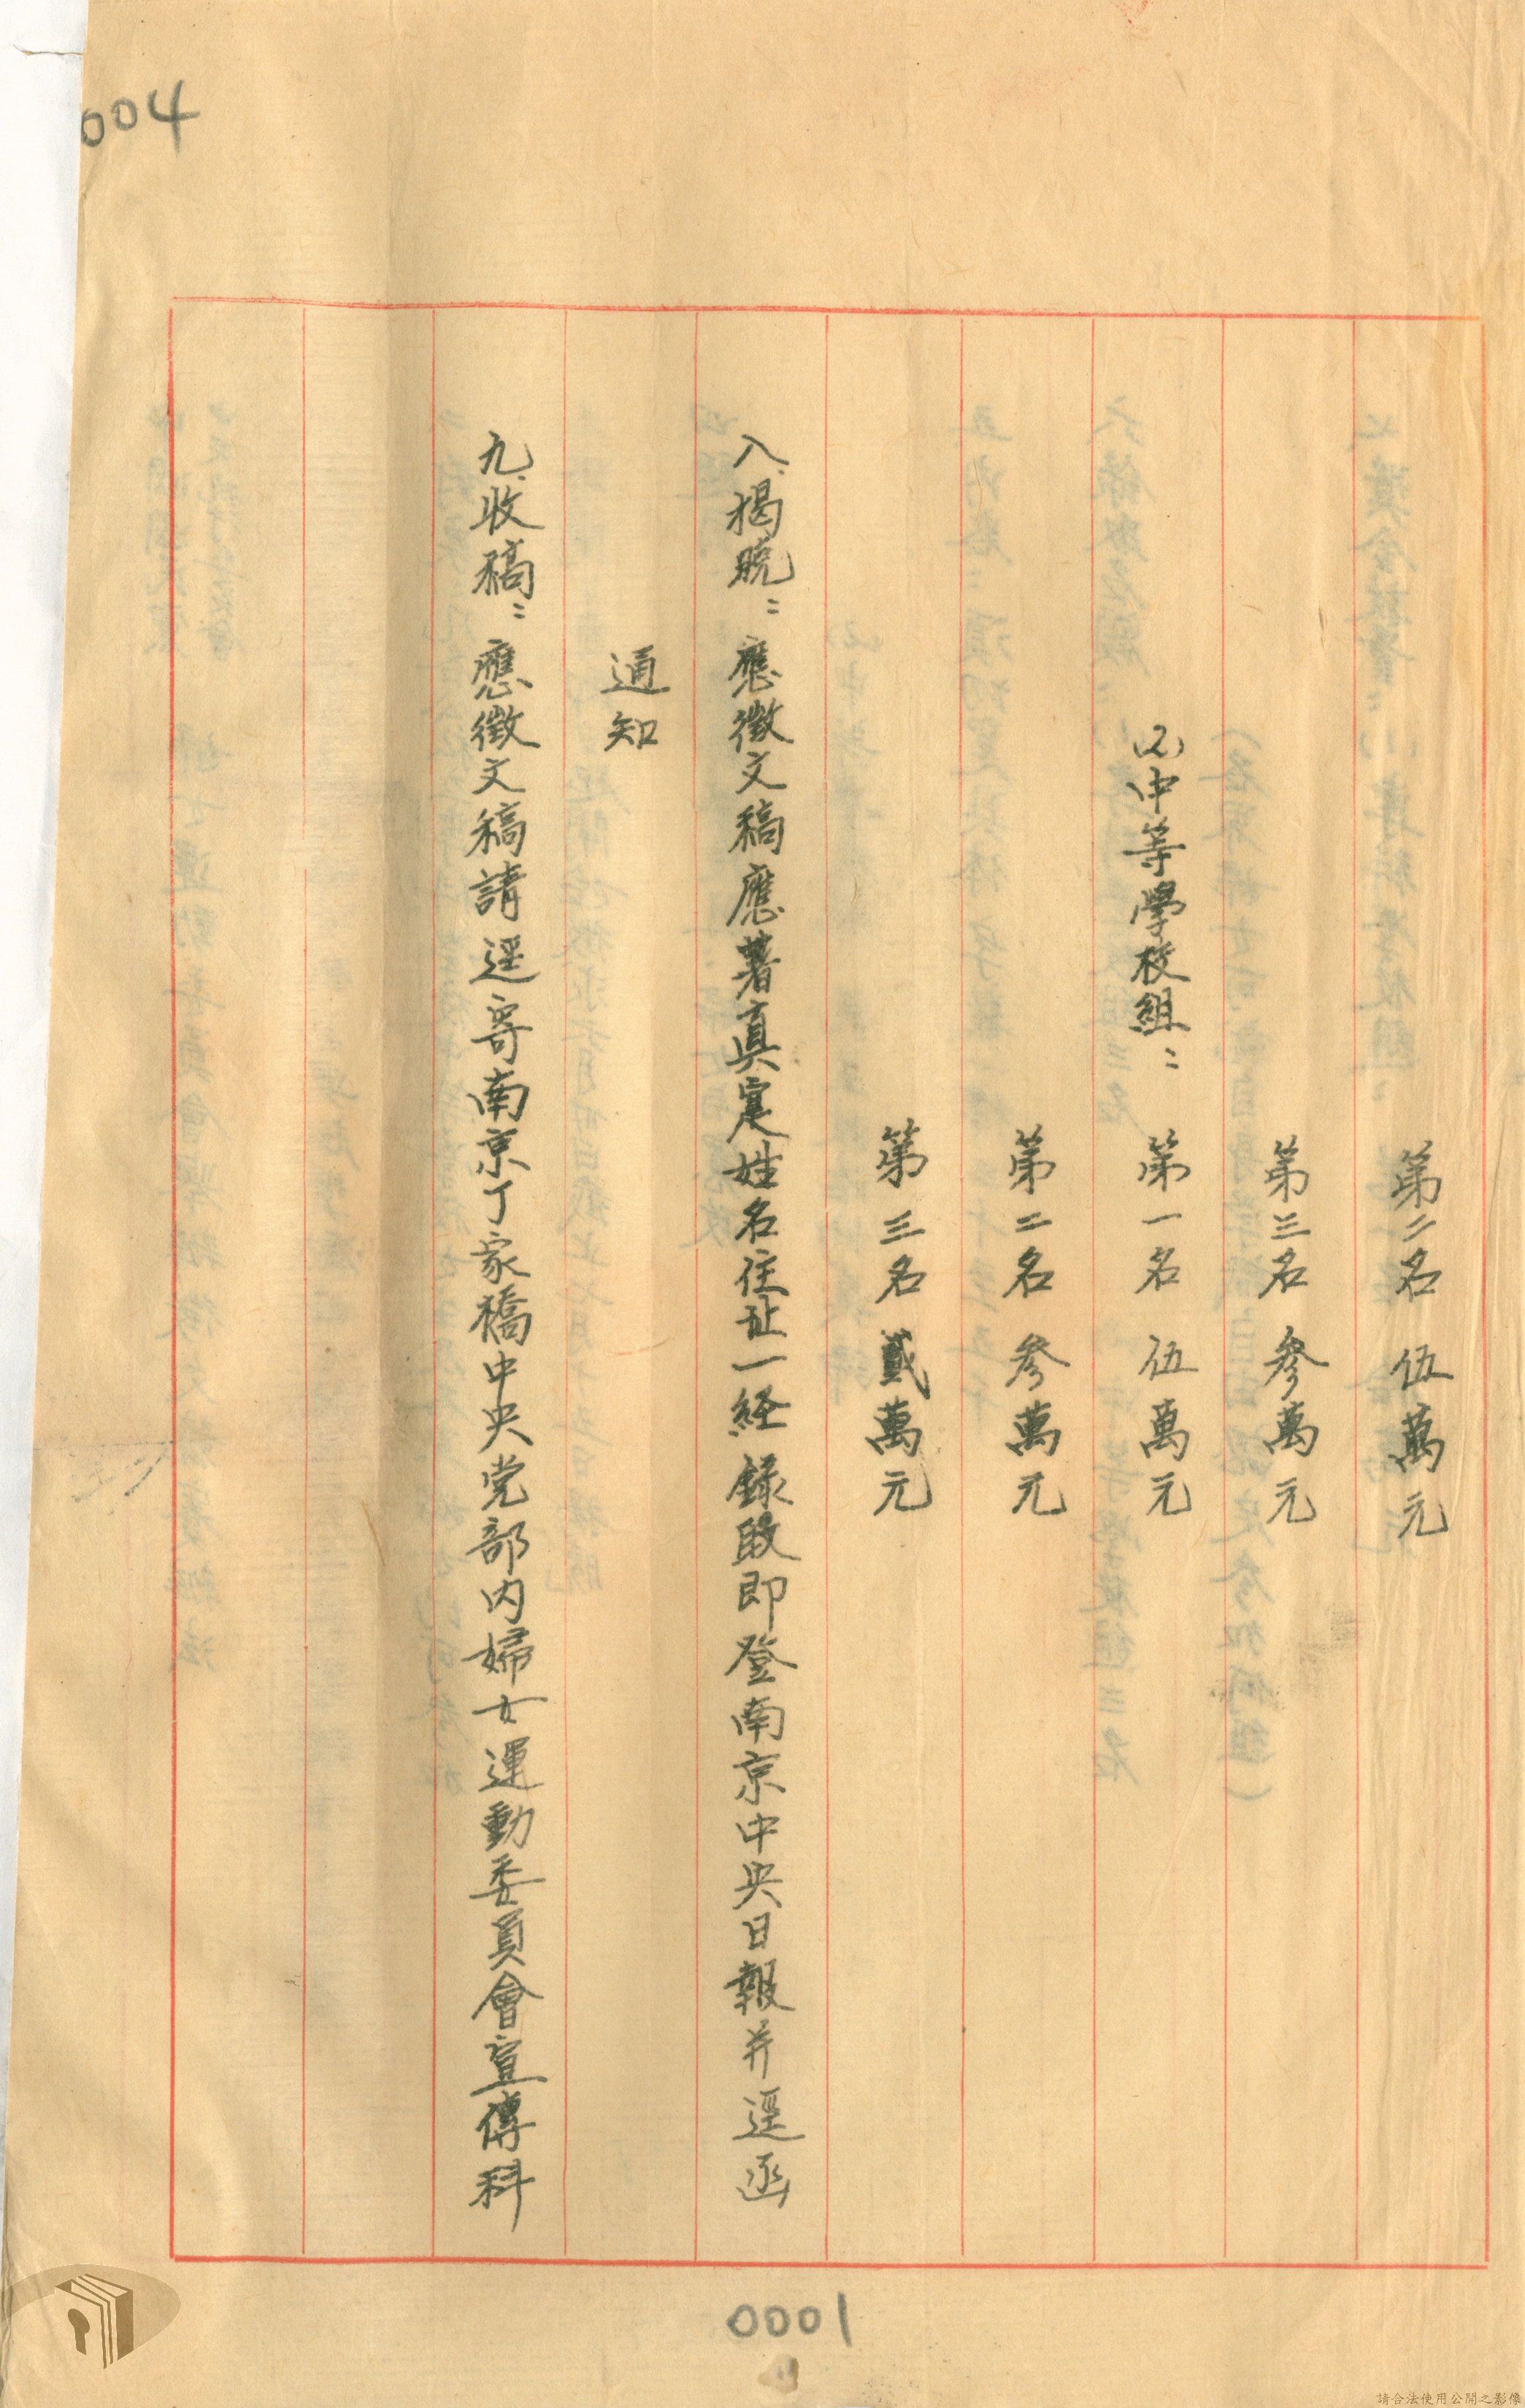 004
第二名 伍萬元
第三名 參萬元
(2)中等學校組： 第一名 伍萬元
第二名 參萬元
第三名 貳萬元
八、揭曉：應徵文稿應署真寔姓名住址一経錄取即登南京中央日報并逕函
通知
九、收稿：應徵文稿請逕寄南京丁家橋中央党部內婦女運動委員會宣傳科
0001
請合法使用公開之影像